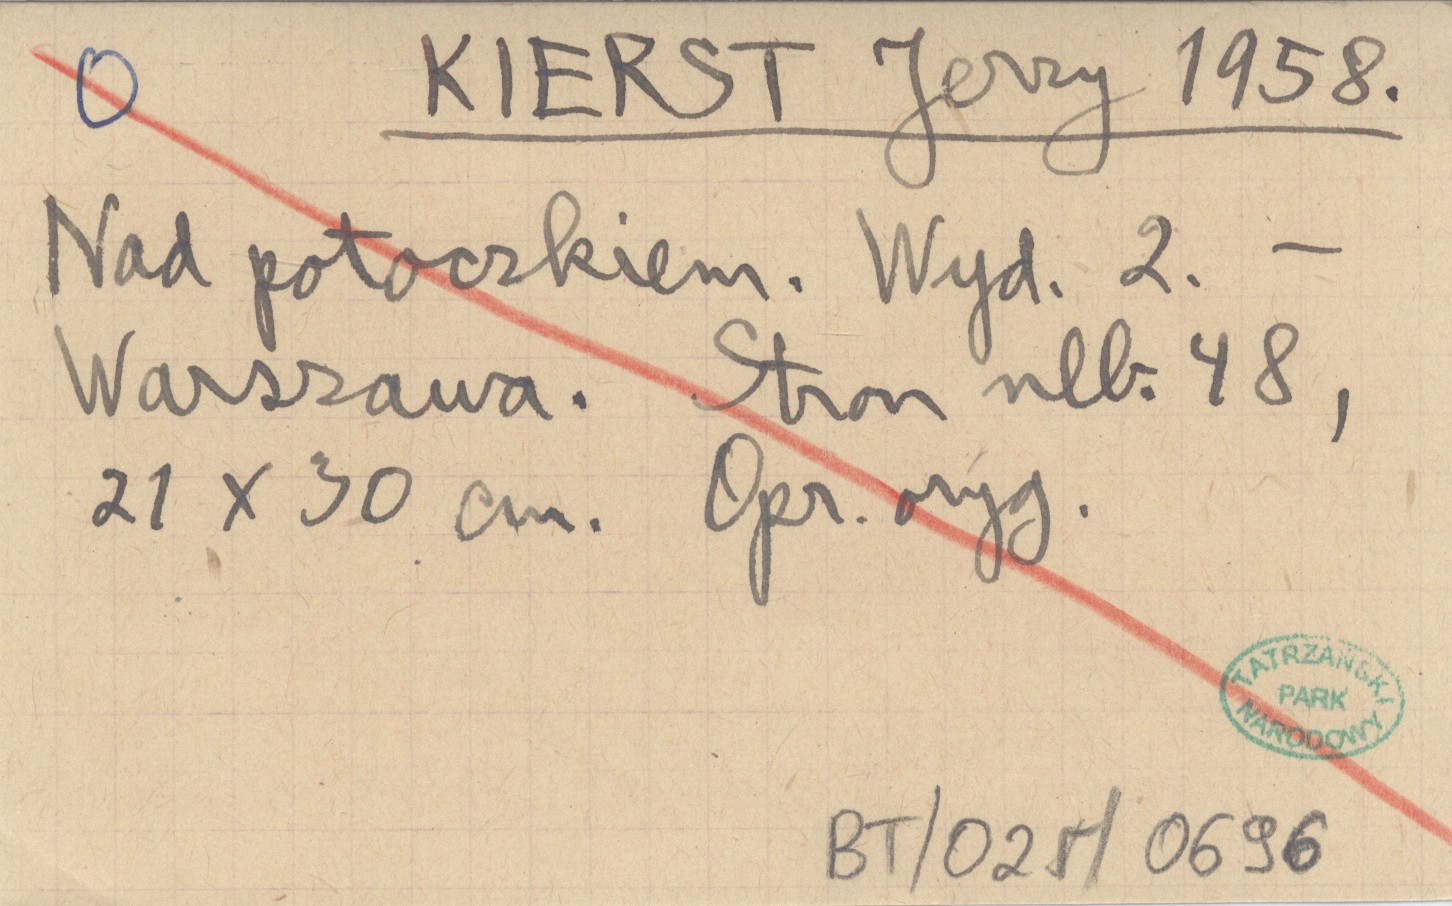 O KIERST Jerzy 1958.
Nad potoczkiem. Wyd. 2. —
Warszawa. Stron nlb. 48,
21 x 30 cm. Opr. oryg.
TATRZAŃSKI
PARK
NARODOWY
BT/025/0696